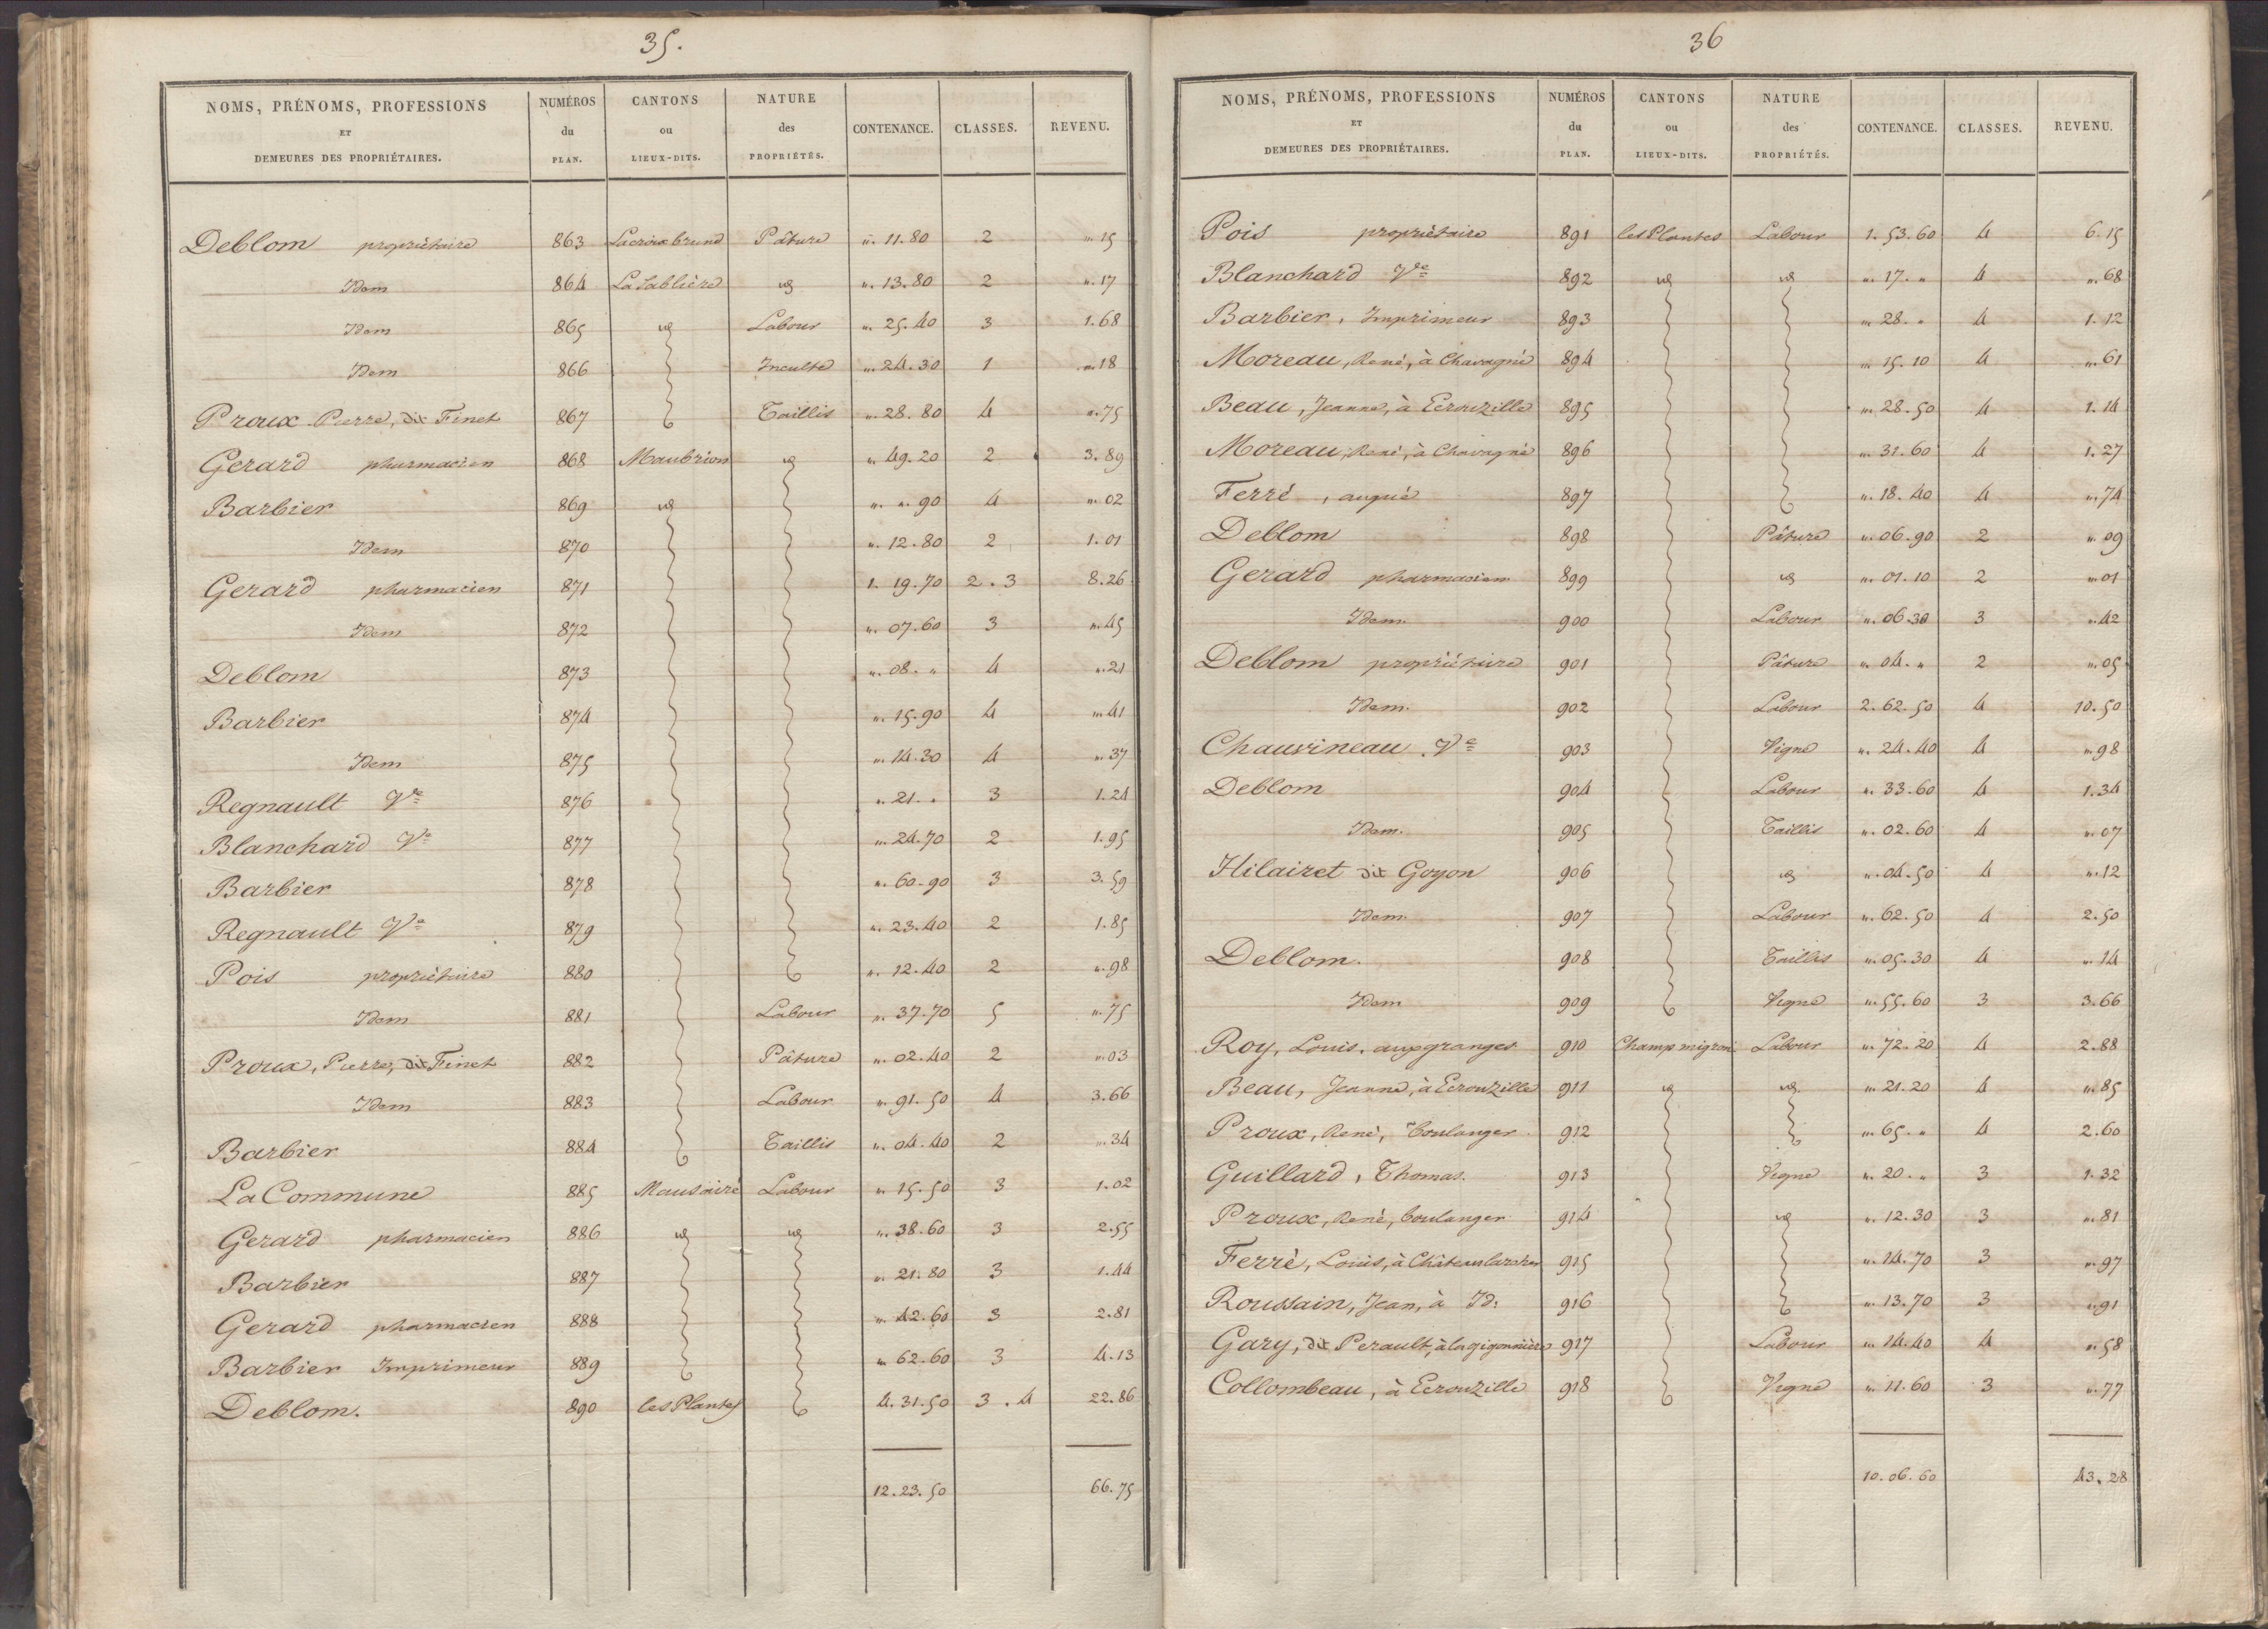 35.
NOMS, PRÉNOMS, PROFESSIONS ET DEMEURES DES PROPRIÉTAIRES. NUMÉROS du PLAN. CANTONS ou LIEUX-DITS. NATURE des PROPRIÉTÉS. CONTENANCE. CLASSES. REVENU.
Deblom propriétaire 863 Lacroix brund Pâture „. 11.80 2 „. 15
Idem 864 La Sablière id „. 13.80 2 „. 17
Idem 865 id Labour „. 25.40 3 1.68
Idem 866 Inculte „. 24.30 1 „. 18
Proux Pierre, dit Finet 867 Taillis „. 28.80 4 „. 75
Gerard pharmacien 868 Maubrion id „. 49.20 2 3.89
Barbier 869 id „. „. 90 4 „. 02
Idem 870 „. 12.80 2 1.01
Gerard pharmacien 871 1. 19.70 2.3 8.26
Idem 872 „. 07.60 3 „. 45
Deblom 873 „. 08. „ 4 „. 21
Barbier 874 „. 15.90 4 „. 41
Idem 875 „. 14.30 4 „. 37
Regnault Ve 876 „. 21. „ 3 1.24
Blanchard Ve 877 „. 24.70 2 1.95
Barbier 878 „. 60.90 3 3.59
Regnault Ve 879 „. 23.40 2 1.85
Pois propriétaire 880 „. 12.40 2 „. 98
Idem 881 Labour „. 37.70 5 „. 75
Proux, Pierre, dit Finet 882 Pâture „. 02.40 2 „. 03
Idem 883 Labour „. 91.50 4 3.66
Barbier 884 Taillis „. 04.40 2 „. 34
La Commune 885 Mausairé Labour „. 15.50 3 1.02
Gerard pharmacien 886 id id „. 38.60 3 2.55
Barbier 887 „. 21.80 3 1.44
Gerard pharmacien 888 „. 42.60 3 2.81
Barbier Imprimeur 889 „. 62.60 3 4.13
Deblom. 890 les Plantes 4. 31.50 3.4 22.86
12.23.50 66.75
36
NOMS, PRÉNOMS, PROFESSIONS ET DEMEURES DES PROPRIÉTAIRES. NUMÉROS du PLAN. CANTONS ou LIEUX-DITS. NATURE des PROPRIÉTÉS. CONTENANCE. CLASSES. REVENU.
Pois propriétaire 891 les Plantes Labour 1. 53.60 4 6.15
Blanchard Ve 892 id id „. 17. „ 4 „. 68
Barbier, Imprimeur 893 „. 28. „ 4 1.12
Moreau, René, à Chavagné 894 „. 15.10 4 „. 61
Beau, Jeanne, à Ecrouzille 895 „. 28.50 4 1.14
Moreau, René, à Chavagné 896 „. 31.60 4 1.27
Ferré, auguié 897 „. 18.40 4 „. 74
Deblom 898 Pâture „. 06.90 2 „. 09
Gerard pharmacien 899 id „. 01.10 2 „. 01
Idem. 900 Labour „. 06.30 3 „. 42
Deblom propriétaire 901 Pâture „. 04. „ 2 „. 05
Idem. 902 Labour 2. 62.50 4 10.50
Chauvineau Ve 903 Vigne „. 24.40 4 „. 98
Deblom 904 Labour „. 33.60 4 1.34
Idem. 905 Taillis „. 02.60 4 „. 07
Hilairet dit Goyon 906 id „. 04.50 4 „. 12
Idem. 907 Labour „. 62.50 4 2.50
Deblom. 908 Taillis „. 05.30 4 „. 14
Idem 909 Vigne „. 55.60 3 3.66
Roy, Louis, aux granges 910 Champ migron Labour „. 72.20 4 2.88
Beau, Jeanne, à Ecrouzille 911 id id „. 21.20 4 „. 85
Proux, René, boulanger 912 „. 65. „ 4 2.60
Guillard, Thomas. 913 Vigne „. 20. „ 3 1.32
Proux, René, boulanger 914 id „. 12.30 3 „. 81
Ferré, Louis, à Châteaularcher 915 „. 14.70 3 „. 97
Roussain, Jean, à Id: 916 „. 13.70 3 „. 91
Gary, dit Perault, à la gigonnière 917 Labour „. 14.40 4 „. 58
Collombeau, à Ecrouzille 918 Vigne „. 11.60 3 „. 77
10.06.60 43.28